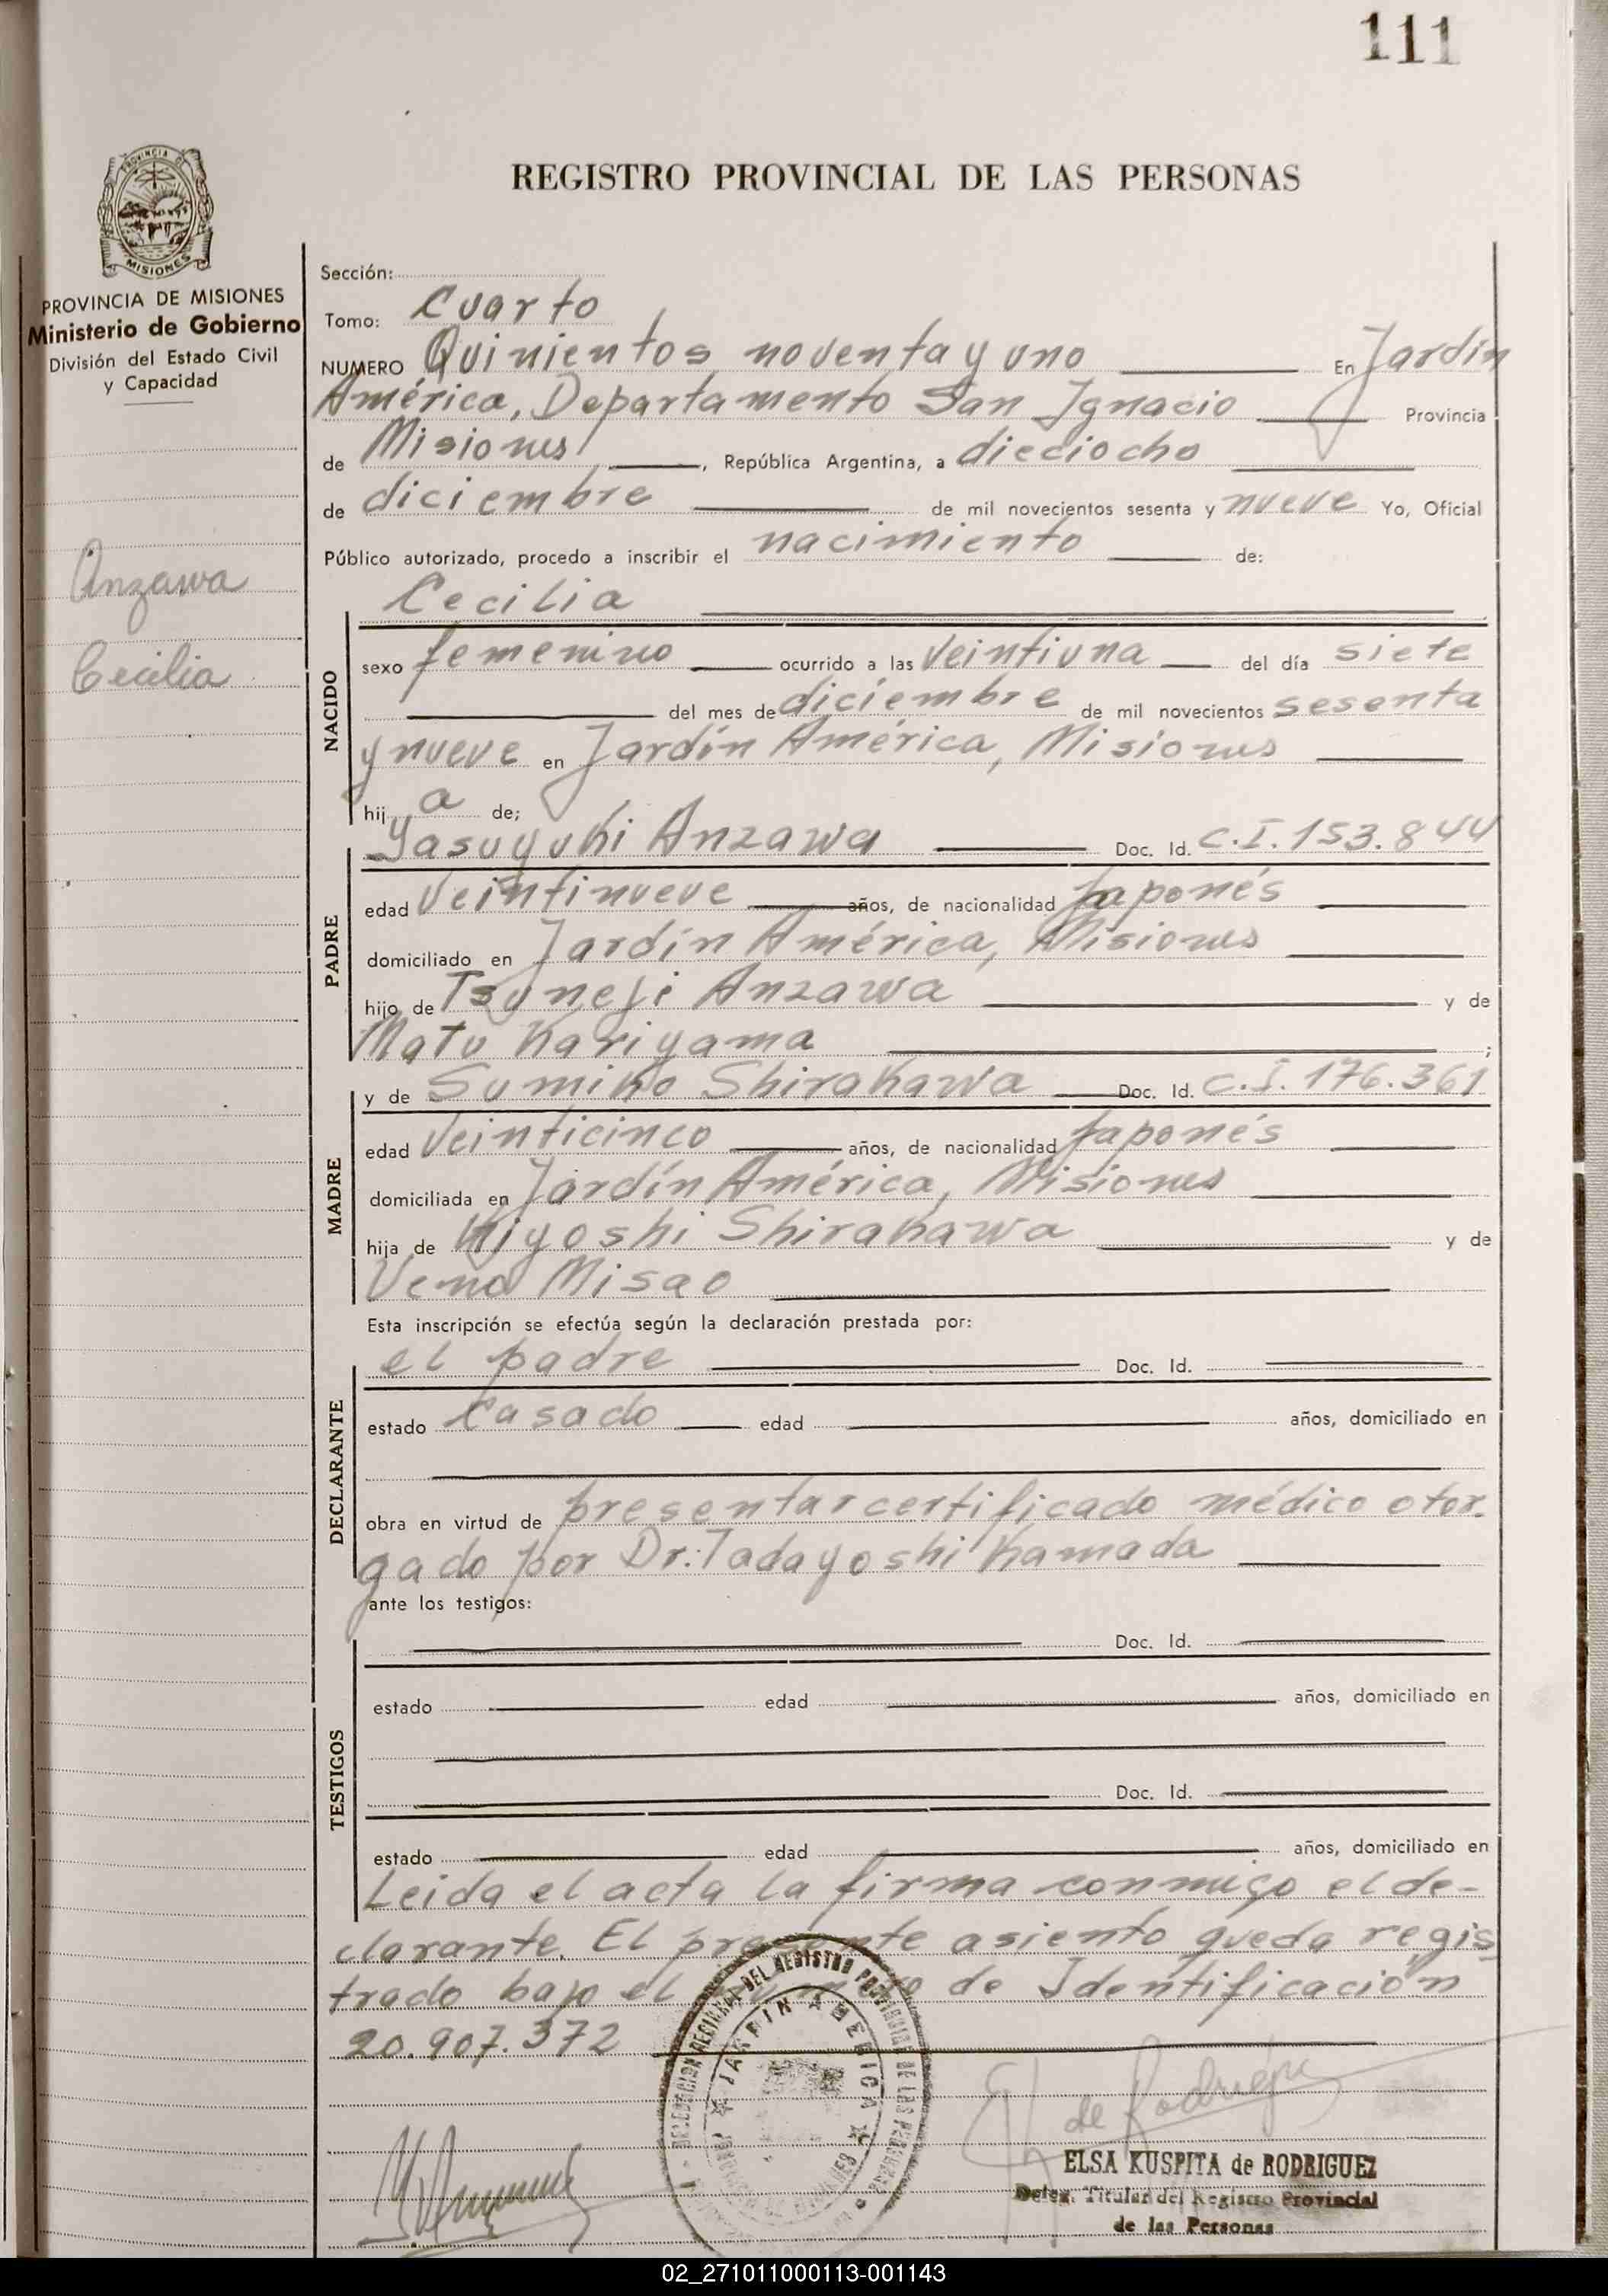 111
REGISTRO PROVINCIAL DE LAS PERSONAS
PROVINCIA DE MISIONES
PROVINCIA DE MISIONES
Ministerio de Gobierno
División del Estado Civil
y Capacidad
Anzawa
Cecilia
Sección:
Tomo: Cuarto
NUMERO Quinientos noventa y uno En Jardín
América, Departamento San Ignacio Provincia
de Misiones, República Argentina, a dieciocho
de diciembre de mil novecientos sesenta y nueve Yo, Oficial
Público autorizado, procedo a inscribir el nacimiento de:
Cecilia
NACIDO
sexo femenino ocurrido a las veintiuna del día siete
del mes de diciembre de mil novecientos sesenta
y nueve en Jardín América, Misiones
hij a de;
PADRE
Yasuyuki Anzawa Doc. Id. C.I. 153.844
edad Veintinueve años, de nacionalidad Japonés
domiciliado en Jardín América, Misiones
hijo de Tsuneji Anzawa y de
Matu Kariyama ;
MADRE
y de Sumiko Shirakawa Doc. Id. C.I. 176.361
edad Veinticinco años, de nacionalidad Japonés
domiciliada en Jardín América, Misiones
hija de Kiyoshi Shirakawa y de
Ueno Misao
Esta inscripción se efectúa según la declaración prestada por:
DECLARANTE
el padre Doc. Id.
estado Casado edad años, domiciliado en
obra en virtud de presentar certificado médico otor-
gado por Dr. Tadayoshi Kamada
ante los testigos:
TESTIGOS
Doc. Id.
estado edad años, domiciliado en
Doc. Id.
estado edad años, domiciliado en
Leida el acta la firma conmigo el de-
clarante. El presente asiento queda regis
trado bajo el número de Identificación
20.907.372
DELEGACION REGIONAL DEL REGISTRO PROVINCIAL DE LAS PERSONAS
JARDIN AMERICA
de Rodriguez
ELSA KUSPITA de RODRIGUEZ
Deleg. Titular del Registro Provincial
de las Personas
02_271011000113-001143